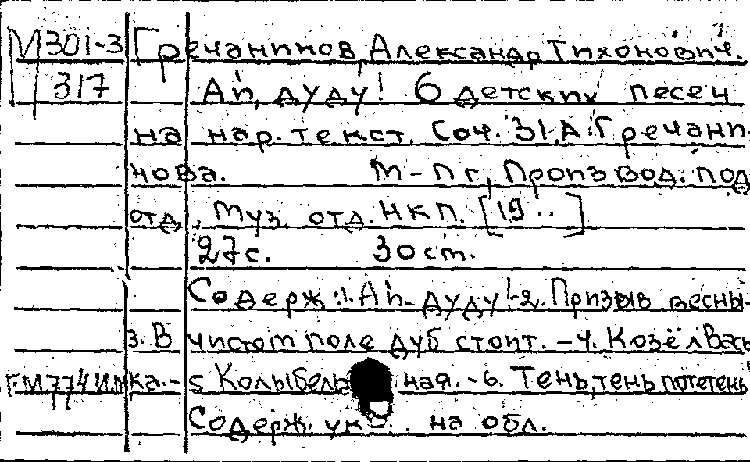 М301-3 Гречанинов, Александр Тихонович.
317 Ай, дуду! 6 детских песен
на нар. текст. Соч. 31, А. Гречани-
нова. М-Пг, Производ. под
отд. Муз. отд. НКП. [19..]
27с. 30 ст.
Содерж: 1. Ай-дуду!-2. Призыв весны-
3. В чистом поле дуб стоит. -4. Козёл Вась
ка.-5 Колыбельная.-6. Тень, тень потетень
Содерж. ук . на обл.